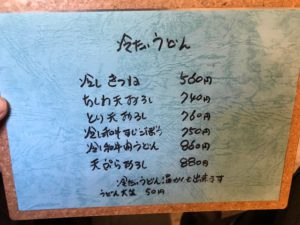 冷たいうどん
冷しきつね 560円
ちくわ天おろし 740円
とり天おろし 760円
冷し和牛すじごぼう 750円
冷し和牛肉うどん 860円
天ぷらおろし 880円
冷たいうどん温かくも出来ます
うどん大盛 50円